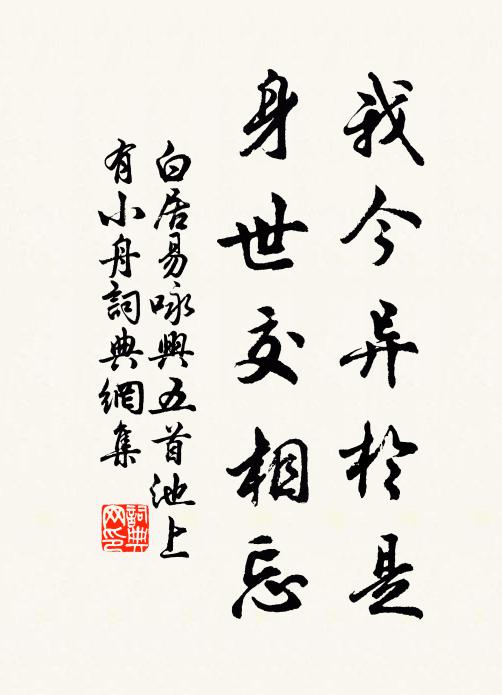 我今异於是
身世交相忘
白居易咏興五首池上
有小舟詞典網集
詞典
网印